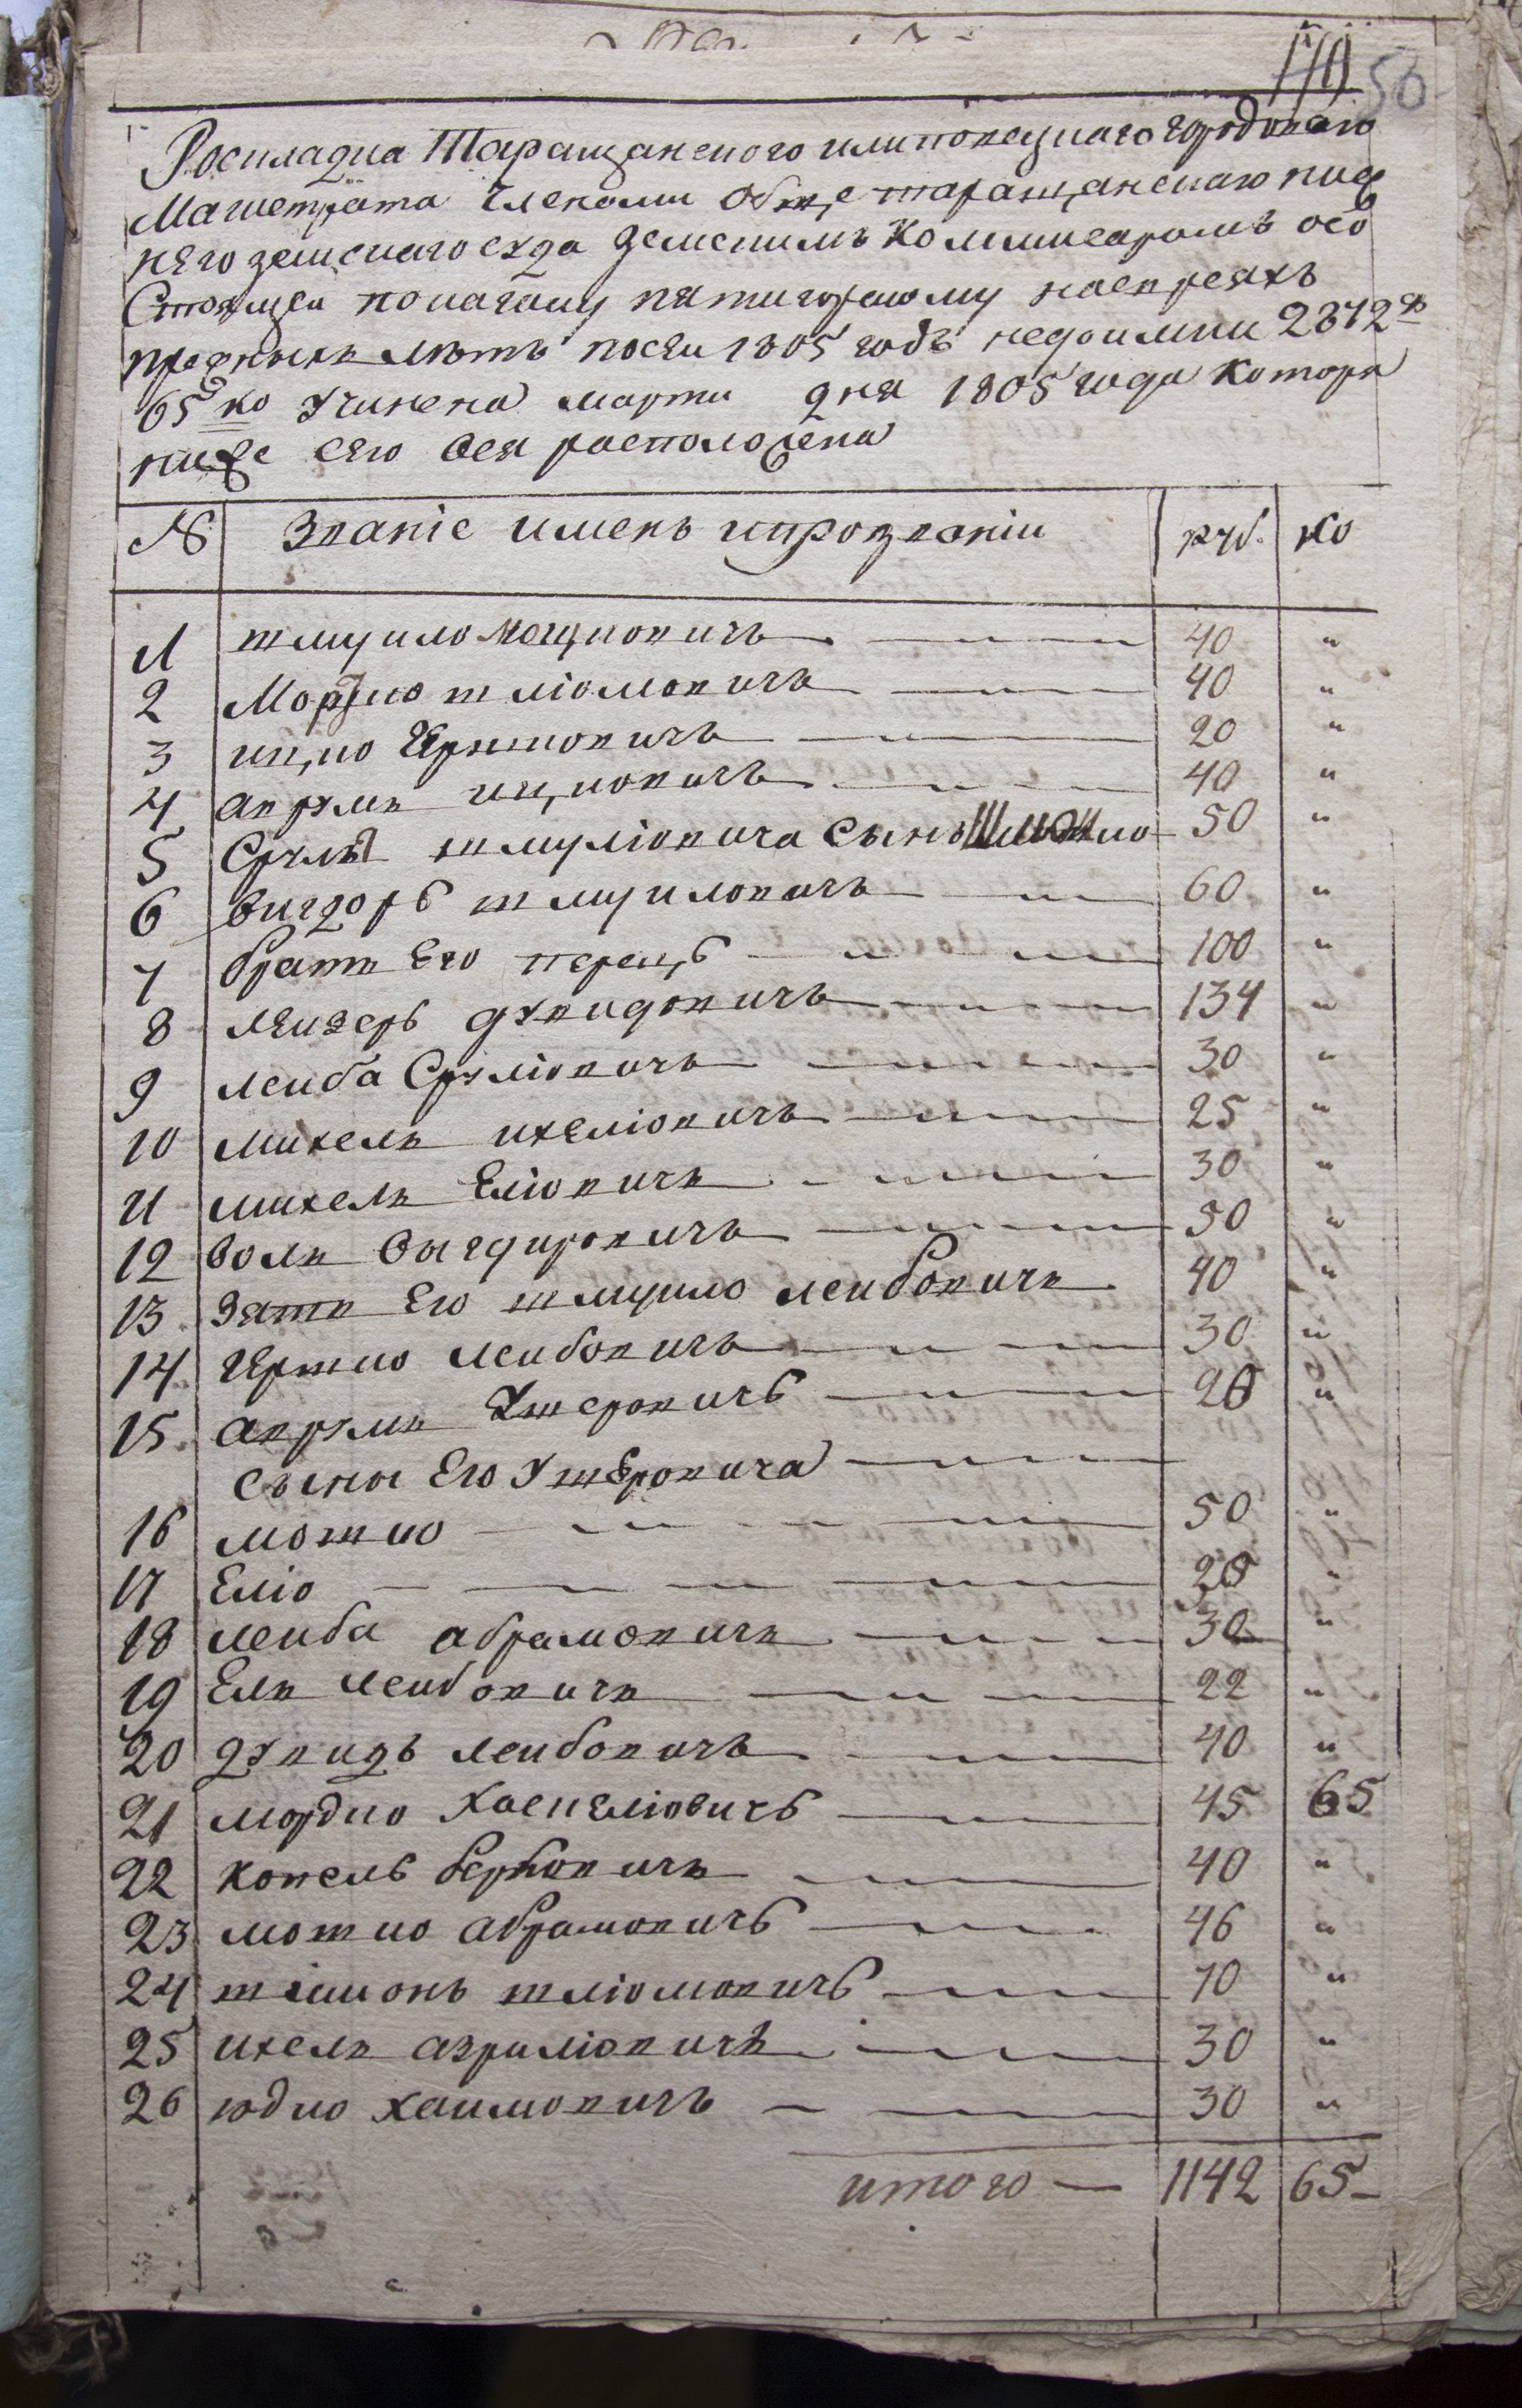 50
Роскладка Таращанского илиповецкаго городоваго
Магистрата членами обще старащанскаго ниж
няго земскаго суда земскимъ коммисаромъ осо
стоящей покагалу пятигорскому наевреяхъ
прежныхъ летъ посеи 1805 годъ недоимки 2372 ру
65 ко учинена марта дня 1805 года котора
ниже сего вся расположена
№ Званіе именъ ипрозваніи руб. ко
1 шмуило мошковичъ 40 "
2 Мордко шліомовичъ 40 "
3 ицко Гершковичъ 20 "
4 аврумъ ицковичъ 40 "
5 Сруля шмуліовича сынъ Шмоило 50 "
6 вигдоръ шмуиловичъ 60 "
7 братъ Его перецъ 100 "
8 леизеръ духидовичъ 134 "
9 леиба Сруліовичъ 30 "
10 михель ихеліовичъ 25 "
11 михель Еліовичъ 30 "
12 волъ вигдировичъ 50 "
13 зять Его шмуило леибовичъ 40 "
14 гершко леибовичъ 30 "
15 аврумъ Ушеровичъ 20 "
сыны Его Ушеровича
16 мошко 50 "
17 Еліо 20 "
18 леиба абрамовичъ 30 "
19 Ель леибовичъ 22 "
20 дувидъ леибовичъ 40 "
21 мордко Хаскеліовичъ 45 65
22 копель берковичъ 40 "
23 мошко абрамовичъ 46 "
24 шимонъ шліомовичъ 70 "
25 ихель азриліовичъ 30 "
26 юдко хаимовичъ 30 "
итого 1142 65